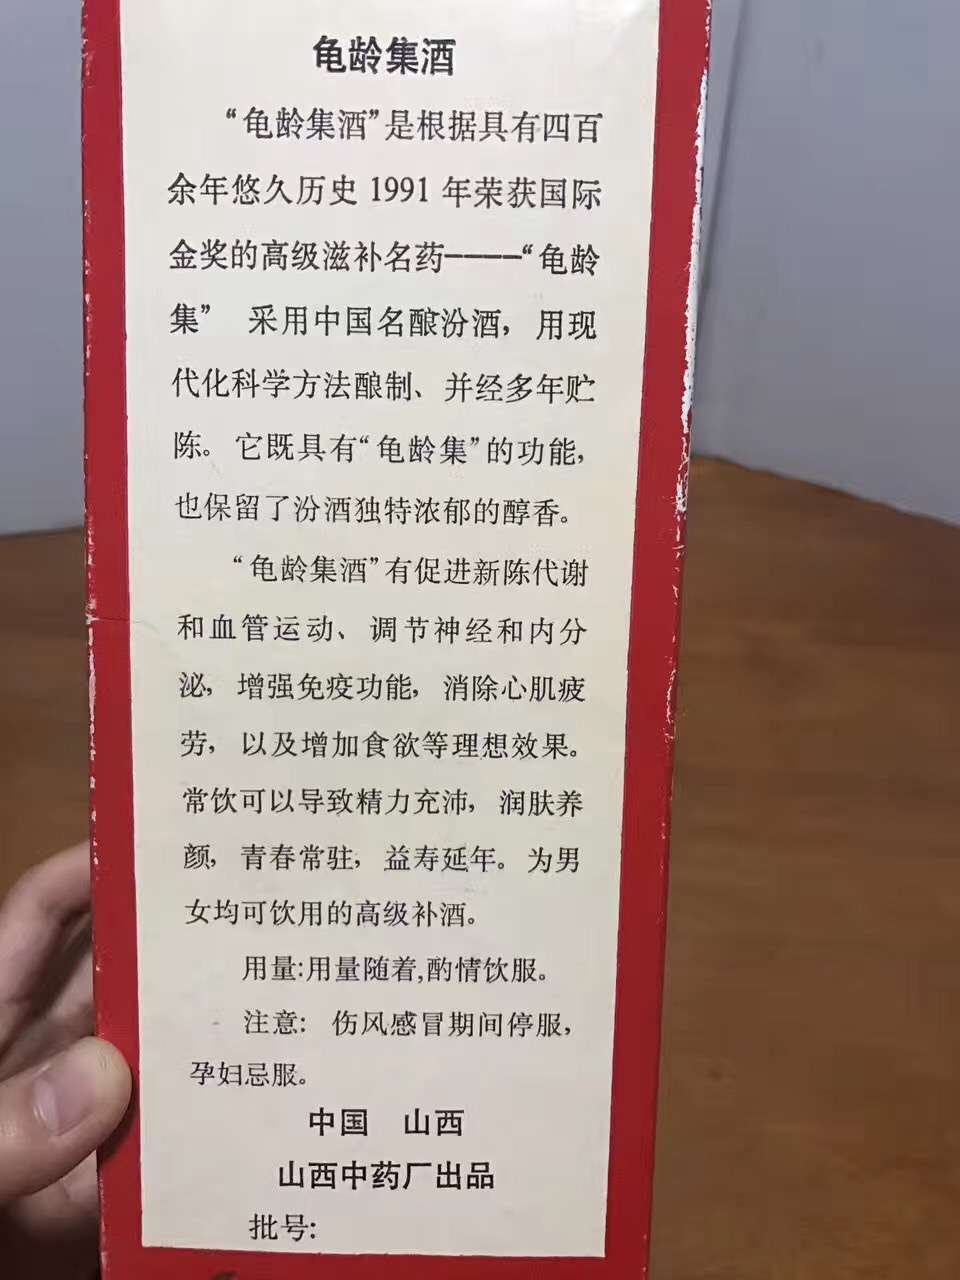 龟龄集酒
“龟龄集酒”是根据具有四百
余年悠久历史1991年荣获国际
金奖的高级滋补名药————“龟龄
集” 采用中国名酿汾酒，用现
代化科学方法酿制、并经多年贮
陈。它既具有“龟龄集”的功能，
也保留了汾酒独特浓郁的醇香。
“龟龄集酒”有促进新陈代谢
和血管运动、调节神经和内分
泌，增强免疫功能，消除心肌疲
劳，以及增加食欲等理想效果。
常饮可以导致精力充沛，润肤养
颜，青春常驻，益寿延年。为男
女均可饮用的高级补酒。
用量:用量随着,酌情饮服。
注意: 伤风感冒期间停服，
孕妇忌服。
中国 山西
山西中药厂出品
批号: